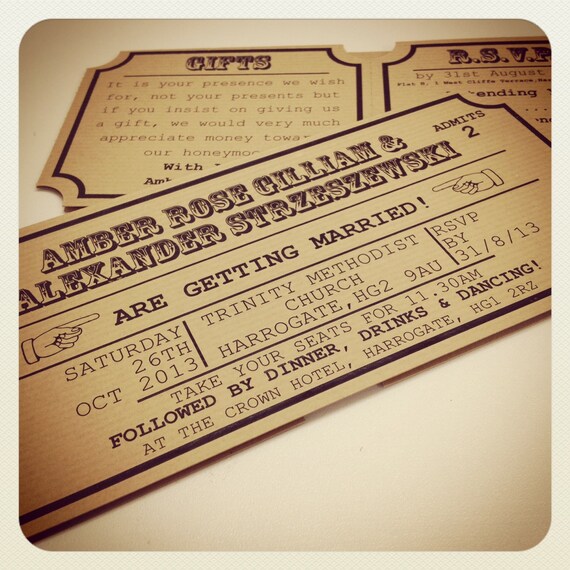 GIFTS
It is your presence we wish
for, not your presents but
if you insist on giving us
a gift, we would very much
appreciate money
our
With
R.S.V.P
by 31st August
ADMITS
2
AMBER ROSE GILLIAM &
ALEXANDER STRZESZEWSKI
ARE GETTING MARRIED!
SATURDAY
26TH
OCT 2013
TRINITY METHODIST
CHURCH
HARROGATE, HG2 9AU
RSVP
BY
31/8/13
TAKE YOUR SEATS FOR 11.30AM
FOLLOWED BY DINNER, DRINKS & DANCING!
AT THE CROWN HOTEL, HARROGATE, HG1 2RZ